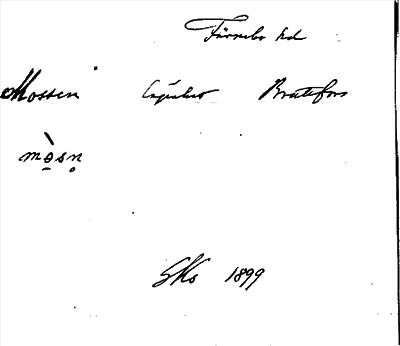 Färnebo hd
Mossen Bratefors
mò̱sn̥
SKs 1899